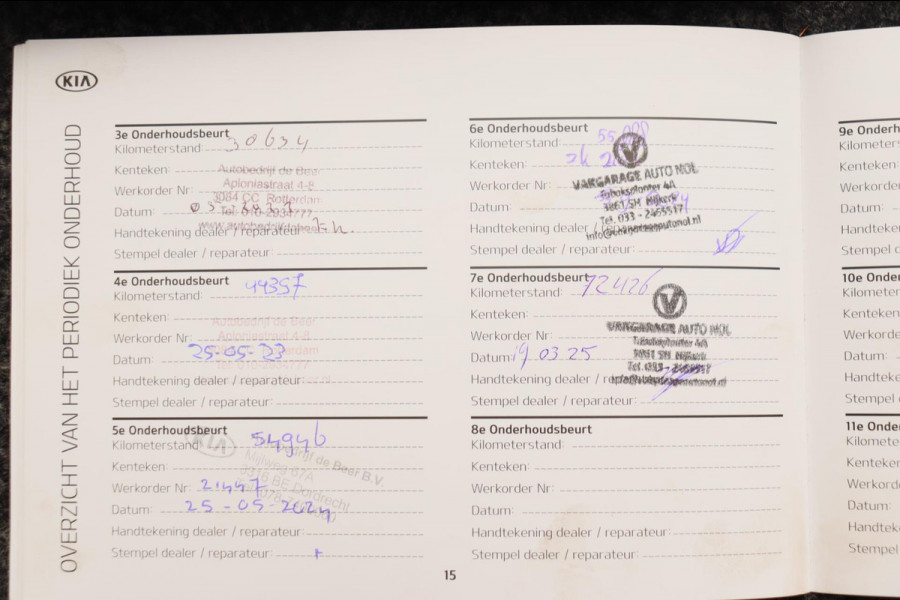 KIA
OVERZICHT VAN HET PERIODIEK ONDERHOUD
3e Onderhoudsbeurt
Kilometerstand 30634
Kenteken:
Autobedrijf de Beer
Werkorder Nr:
Aploniastraat 4-8
3084 CC Rotterdam
Datum:
Tel. 010-2934777
Handtekening dealer / reparateur
Stempel dealer / reparateur:
4e Onderhoudsbeurt
Kilometerstand: 49357
Kenteken:
Autobedrijf de Beer
Werkorder Nr:
Aploniastraat 4-8
Datum: 25-05-23
Tel. 010-2934777
Handtekening dealer / reparateur:
Stempel dealer / reparateur:
5e Onderhoudsbeurt
KIA
Kilometerstand 54946
de Beer B.V.
Kenteken:
Mijlweg 67A
3316 BE Dordrecht
Werkorder Nr 21447
Datum: 25-05-2024
Handtekening dealer / reparateur:
Stempel dealer / reparateur:
6e Onderhoudsbeurt
Kilometerstand
Kenteken:
Werkorder Nr:
VAKGARAGE AUTO NOL
Datum:
3861 SH Nijkerk
Tel. 033 - 2465517
Handtekening dealer /
Stempel dealer / reparateur:
7e Onderhoudsbeurt
Kilometerstand: 72426
Kenteken:
Werkorder Nr:
VAKGARAGE AUTO NOL
Datum: 19 03 25
3861 SH Nijkerk
Tel. 033 - 2465517
Handtekening dealer /
Stempel dealer / reparateur:
8e Onderhoudsbeurt
Kilometerstand:
Kenteken:
Werkorder Nr:
Datum:
Handtekening dealer / reparateur:
Stempel dealer / reparateur:
15
9e Onderh
Kilometerst
Kenteken:
Werkorder
Datum:
Handteken
Stempel d
10e Onder
Kilometer
Kenteken:
Werkorde
Datum:
Handteke
Stempel
11e Onde
Kilomete
Kenteke
Werkord
Datum:
Handtek
Stempel